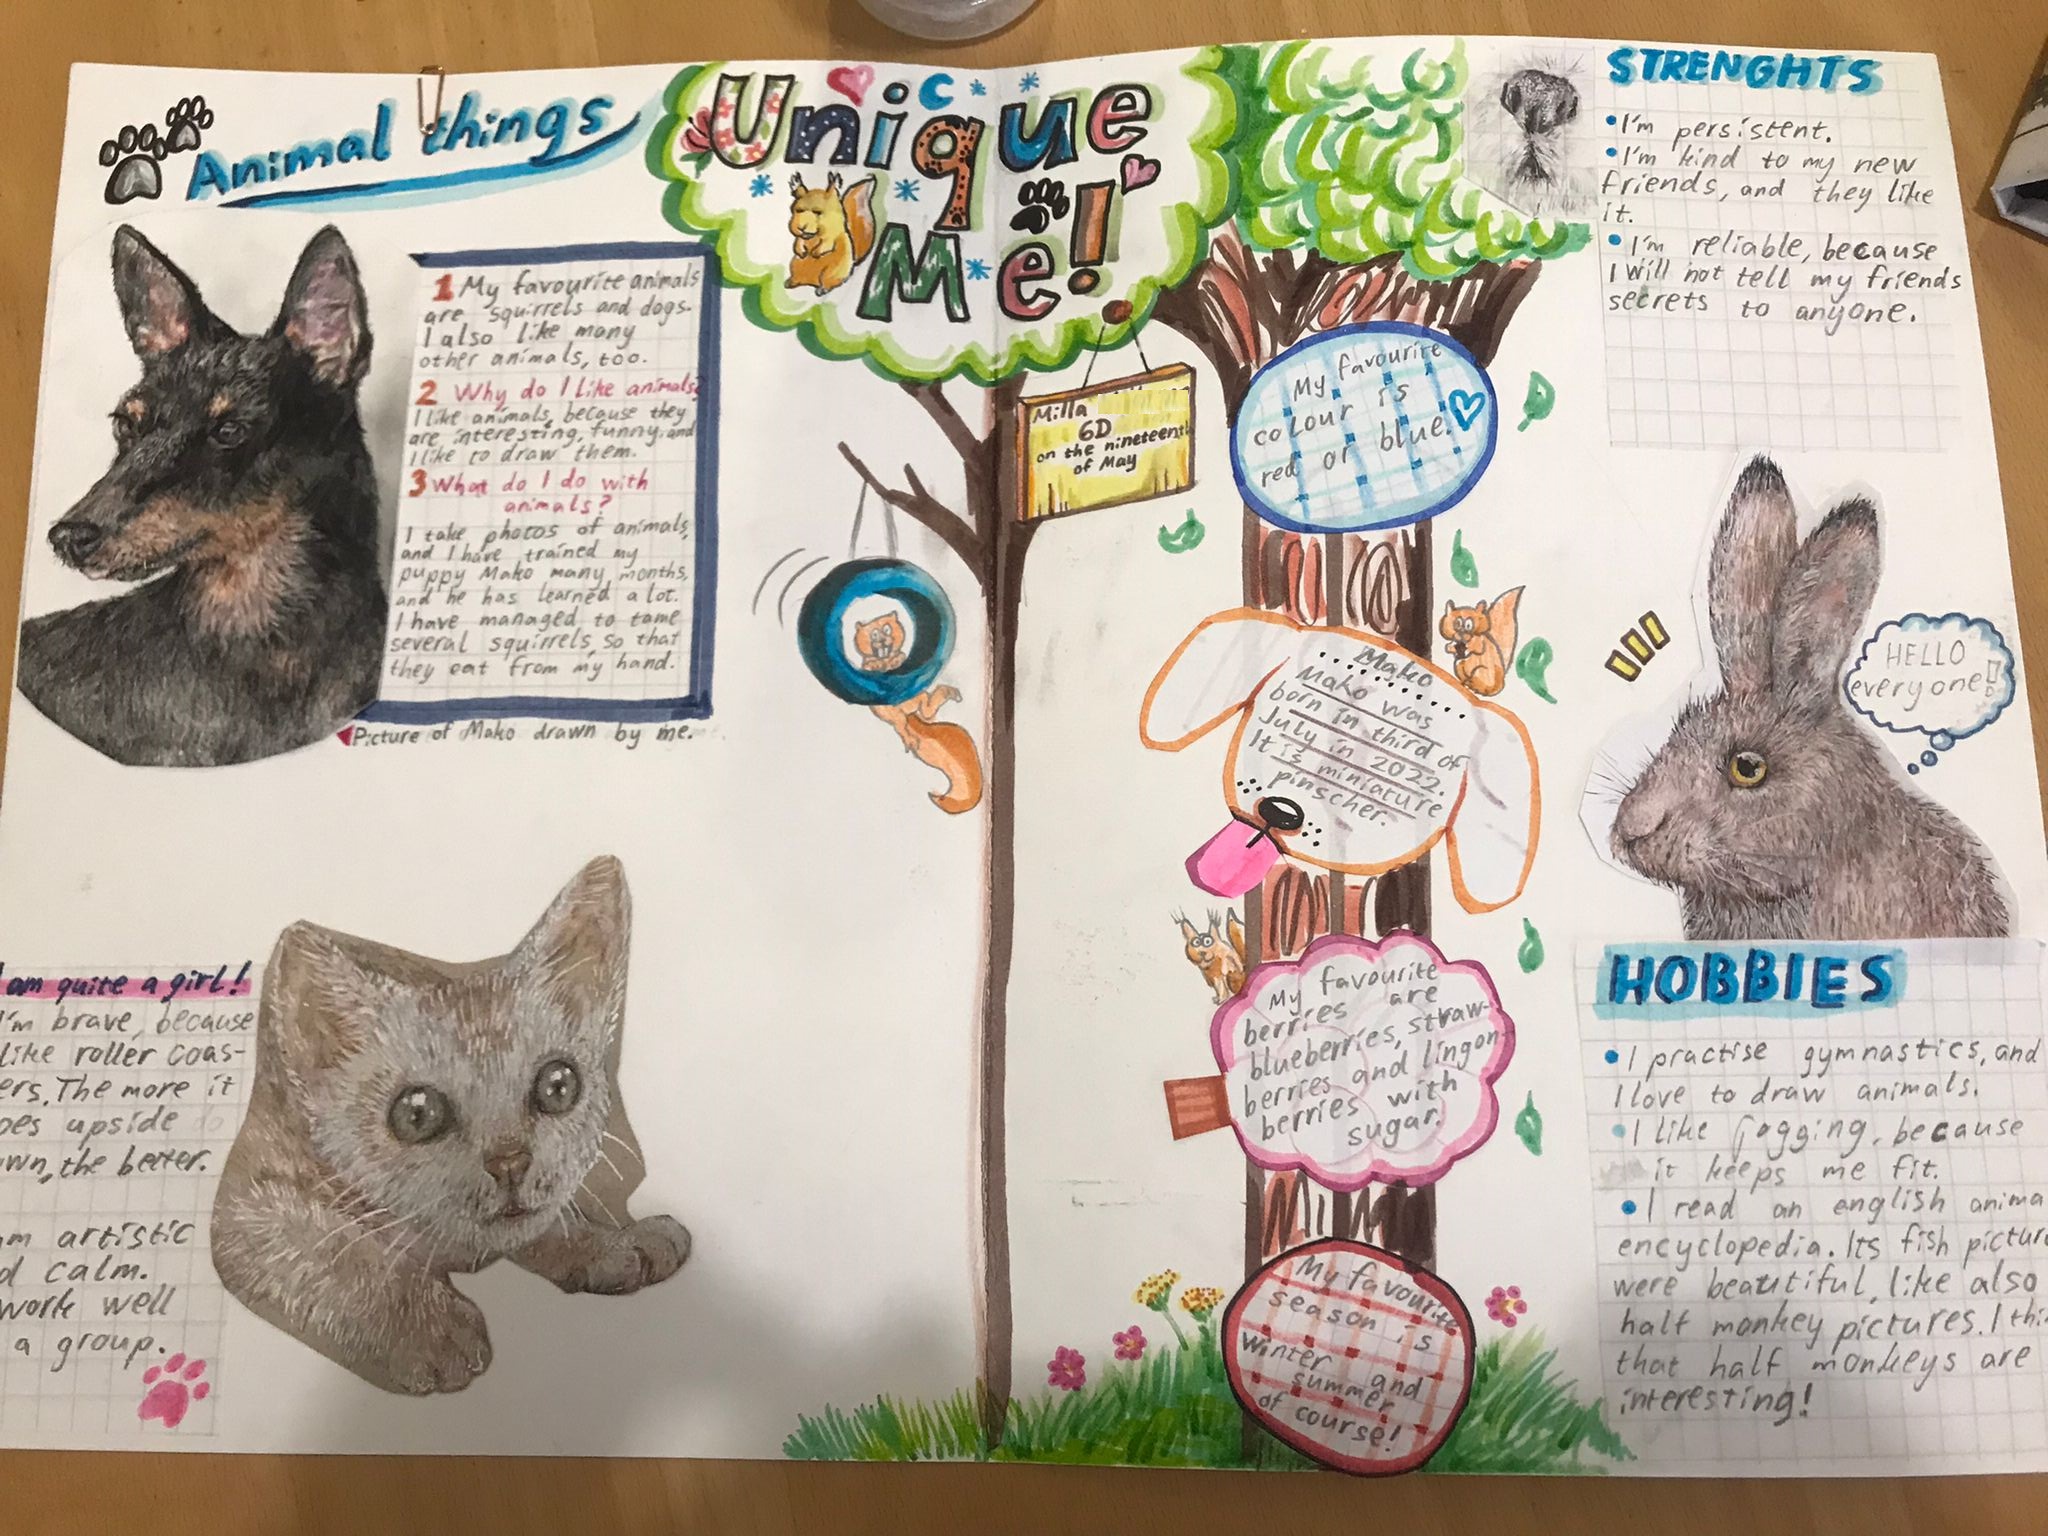 Animal things
1 My favourite animals
are squirrels and dogs.
I also like many
other animals, too.
2 Why do I like animals?
I like animals, because they
are interesting, funny, and
I like to draw them.
3 What do I do with
animals?
I take photos of animals,
and I have trained my
puppy Mako many months,
and he has learned a lot.
I have managed to tame
several squirrels, so that
they eat from my hand.
Picture of Mako drawn by me.
am quite a girl!
I'm brave, because
like roller coas-
ers. The more it
oes upside
wn, the better.
am artistic
d calm.
work well
a group.
Unique
Me!
Milla
6D
on the nineteenth
of May
My favourite
colour is
red or blue.
Mako
Mako was
born in third of
July in 2022.
It is miniature
pinscher.
My favourite
berries are
blueberries, straw-
berries and lingon-
berries with
sugar.
My favourite
season is
winter and
summer
of course!
STRENGHTS
I'm persistent.
I'm kind to my new
friends, and they like
it.
I'm reliable, because
I will not tell my friends
secrets to anyone.
HELLO
everyone!
HOBBIES
I practise gymnastics, and
I love to draw animals.
I like jogging, because
it keeps me fit.
I read an english anima
encyclopedia. Its fish picture
were beautiful, like also
half monkey pictures. I thi
that half monkeys are
interesting!